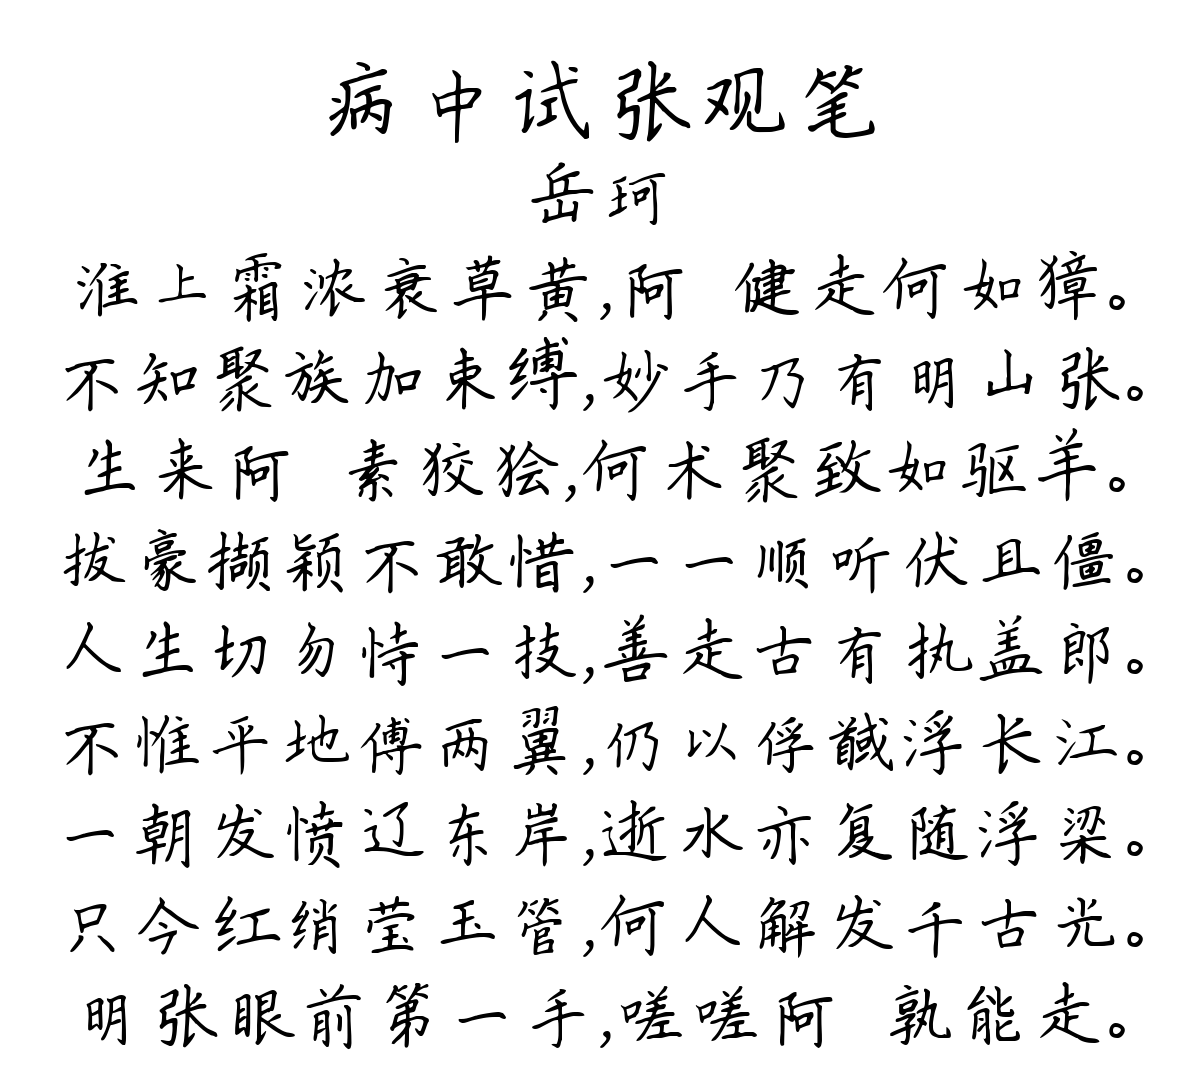 病中试张观笔
岳珂
淮上霜浓衰草黄,阿 健走何如獐。
不知聚族加束缚,妙手乃有明山张。
生来阿 素狡狯,何术聚致如驱羊。
拔豪撷颖不敢惜,一一顺听伏且僵。
人生切勿恃一技,善走古有执盖郎。
不惟平地傅两翼,仍以俘馘浮长江。
一朝发愤辽东岸,逝水亦复随浮梁。
只今红绡莹玉管,何人解发千古光。
明张眼前第一手,嗟嗟阿 孰能走。